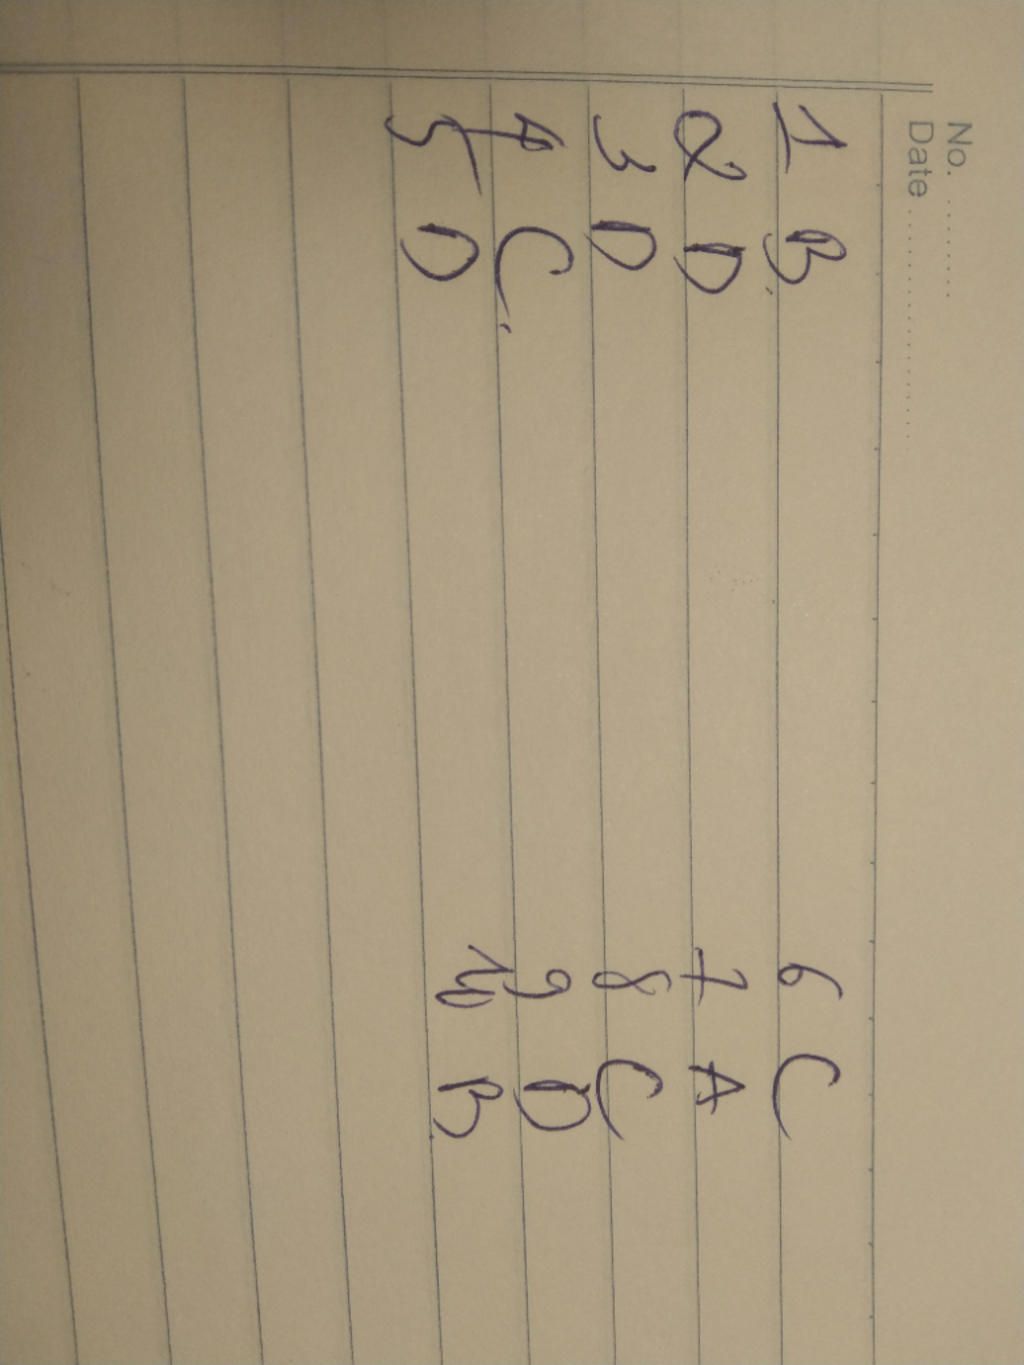 No. ..........
Date ....................
1 B. 6 C
2 D 7 A
3 D 8 C
4 C. 9 D
5 D 10 B